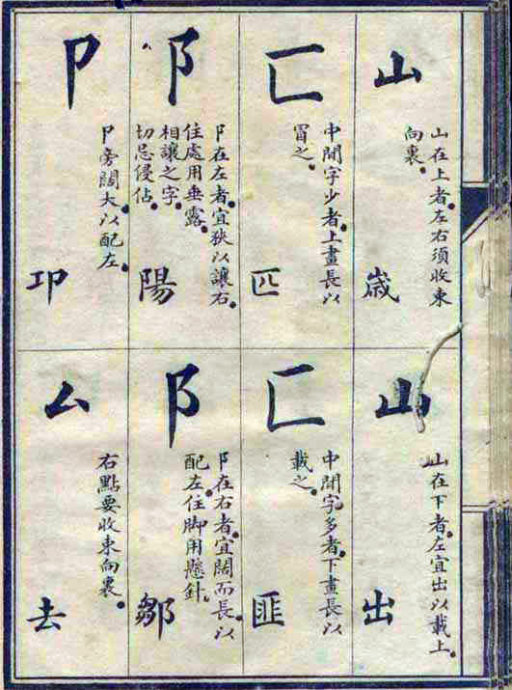 山
山在上者左右須收束
向裏
歲
匚
中間字少者上畫長以
冒之
匹
阝
阝在左者宜狹以讓右
住處用垂露
相讓之字
切忌侵佔
陽
卩
卩旁闊大以配左
卭
山
山在下者左宜出以載上
出
匚
中間字多者下畫長以
載之
匪
阝
阝在右者宜闊而長以
配左住脚用懸針
鄒
厶
右點要收束向裏
去